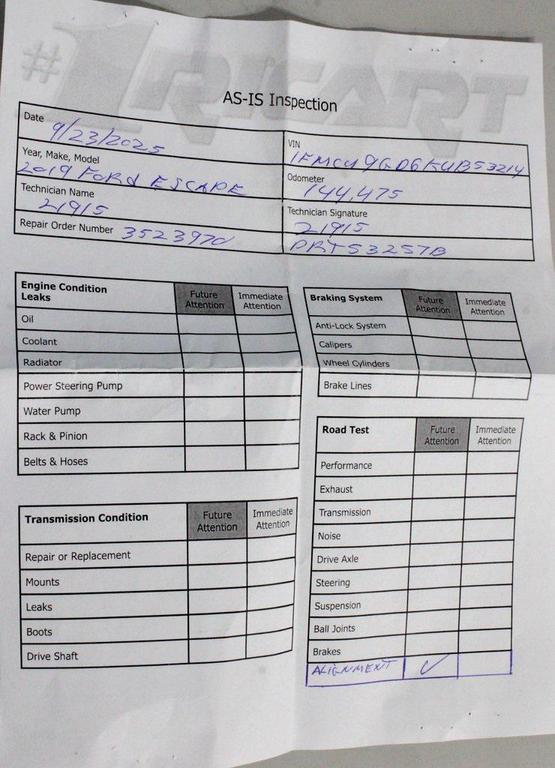 #1 RICART
AS-IS Inspection
Date
9/23/2025
VIN
1FMCU9GD6KUB53214
Year, Make, Model
2019 FORd ESCAPE
Odometer
144,475
Technician Name
21915
Technician Signature
21915
Repair Order Number 3523970
PRT53257B
Engine Condition Leaks Future Attention Immediate Attention
Oil
Coolant
Radiator
Power Steering Pump
Water Pump
Rack & Pinion
Belts & Hoses
Braking System Future Attention Immediate Attention
Anti-Lock System
Calipers
Wheel Cylinders
Brake Lines
Transmission Condition Future Attention Immediate Attention
Repair or Replacement
Mounts
Leaks
Boots
Drive Shaft
Road Test Future Attention Immediate Attention
Performance
Exhaust
Transmission
Noise
Drive Axle
Steering
Suspension
Ball Joints
Brakes
ALIGNMENT ✓